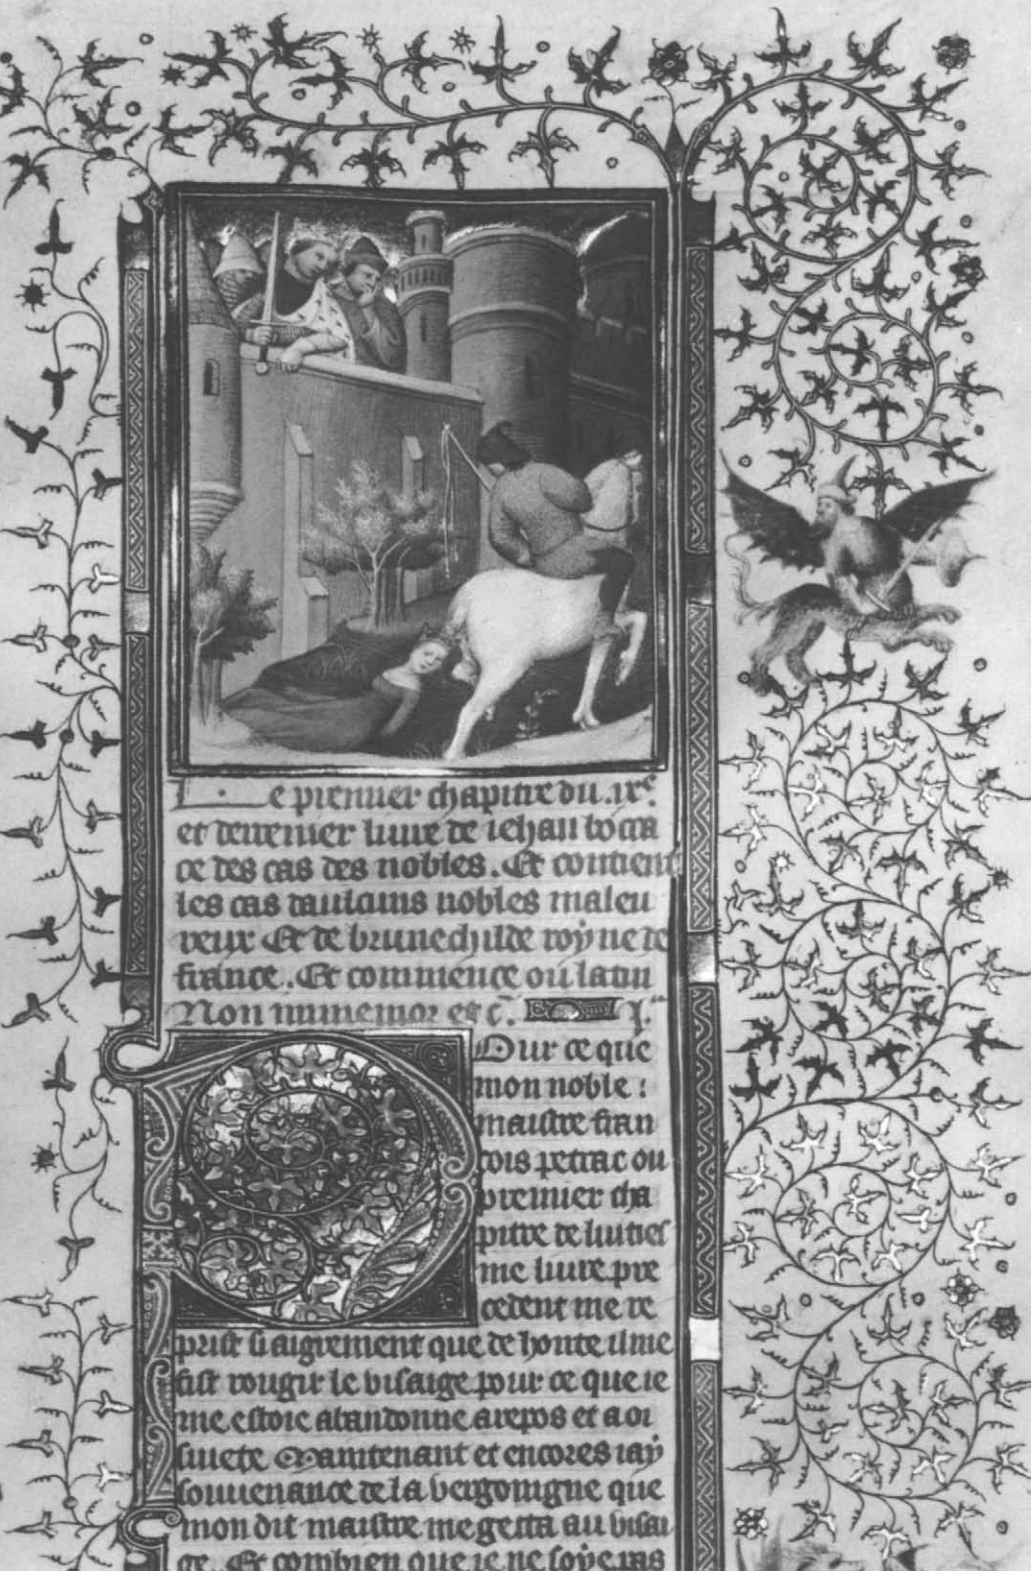 Le premier chapitre du .ixe.
et derrenier livre de iehan bocca
ce des cas des nobles. Et contient
les cas daulcuns nobles maleu
reux Et de brunechilde royne de
france. Et commence ou latin
Non immemor et c̃. I.
Pour ce que
mon noble :
maistre fran
cois petrac ou
premier cha
pitre de luities
me livre pre
cedent me re
prist si aigrement que de honte il me
fist rougir le visaige pour ce que ie
me estoie abandonne a repos et a oi
siuete Maintenant et encores iay
souuenance de la vergoingne que
mon dit maistre me getta au visai
ge. Et combien que ie ne soye pas